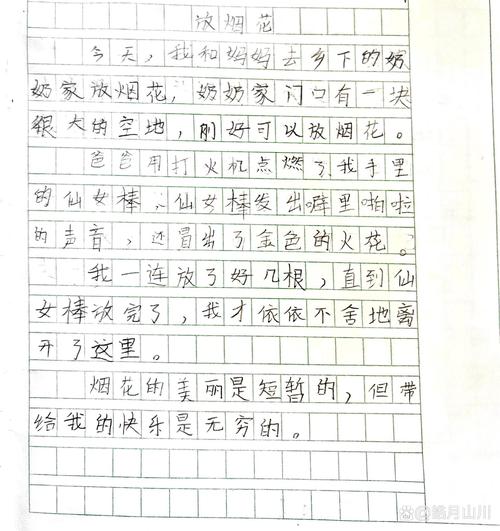 放烟花
今天，我和妈妈去乡下的奶
奶家放烟花，奶奶家门口有一块
很大的空地，刚好可以放烟花。
爸爸用打火机点燃了我手里
的仙女棒、仙女棒发出噼里啪啦
的声音，还冒出了金色的火花。
我一连放了好几根，直到仙
女棒放完了，我才依依不舍地离
开了这里。
烟花的美丽是短暂的，但带
给我的快乐是无穷的。
皓月山川